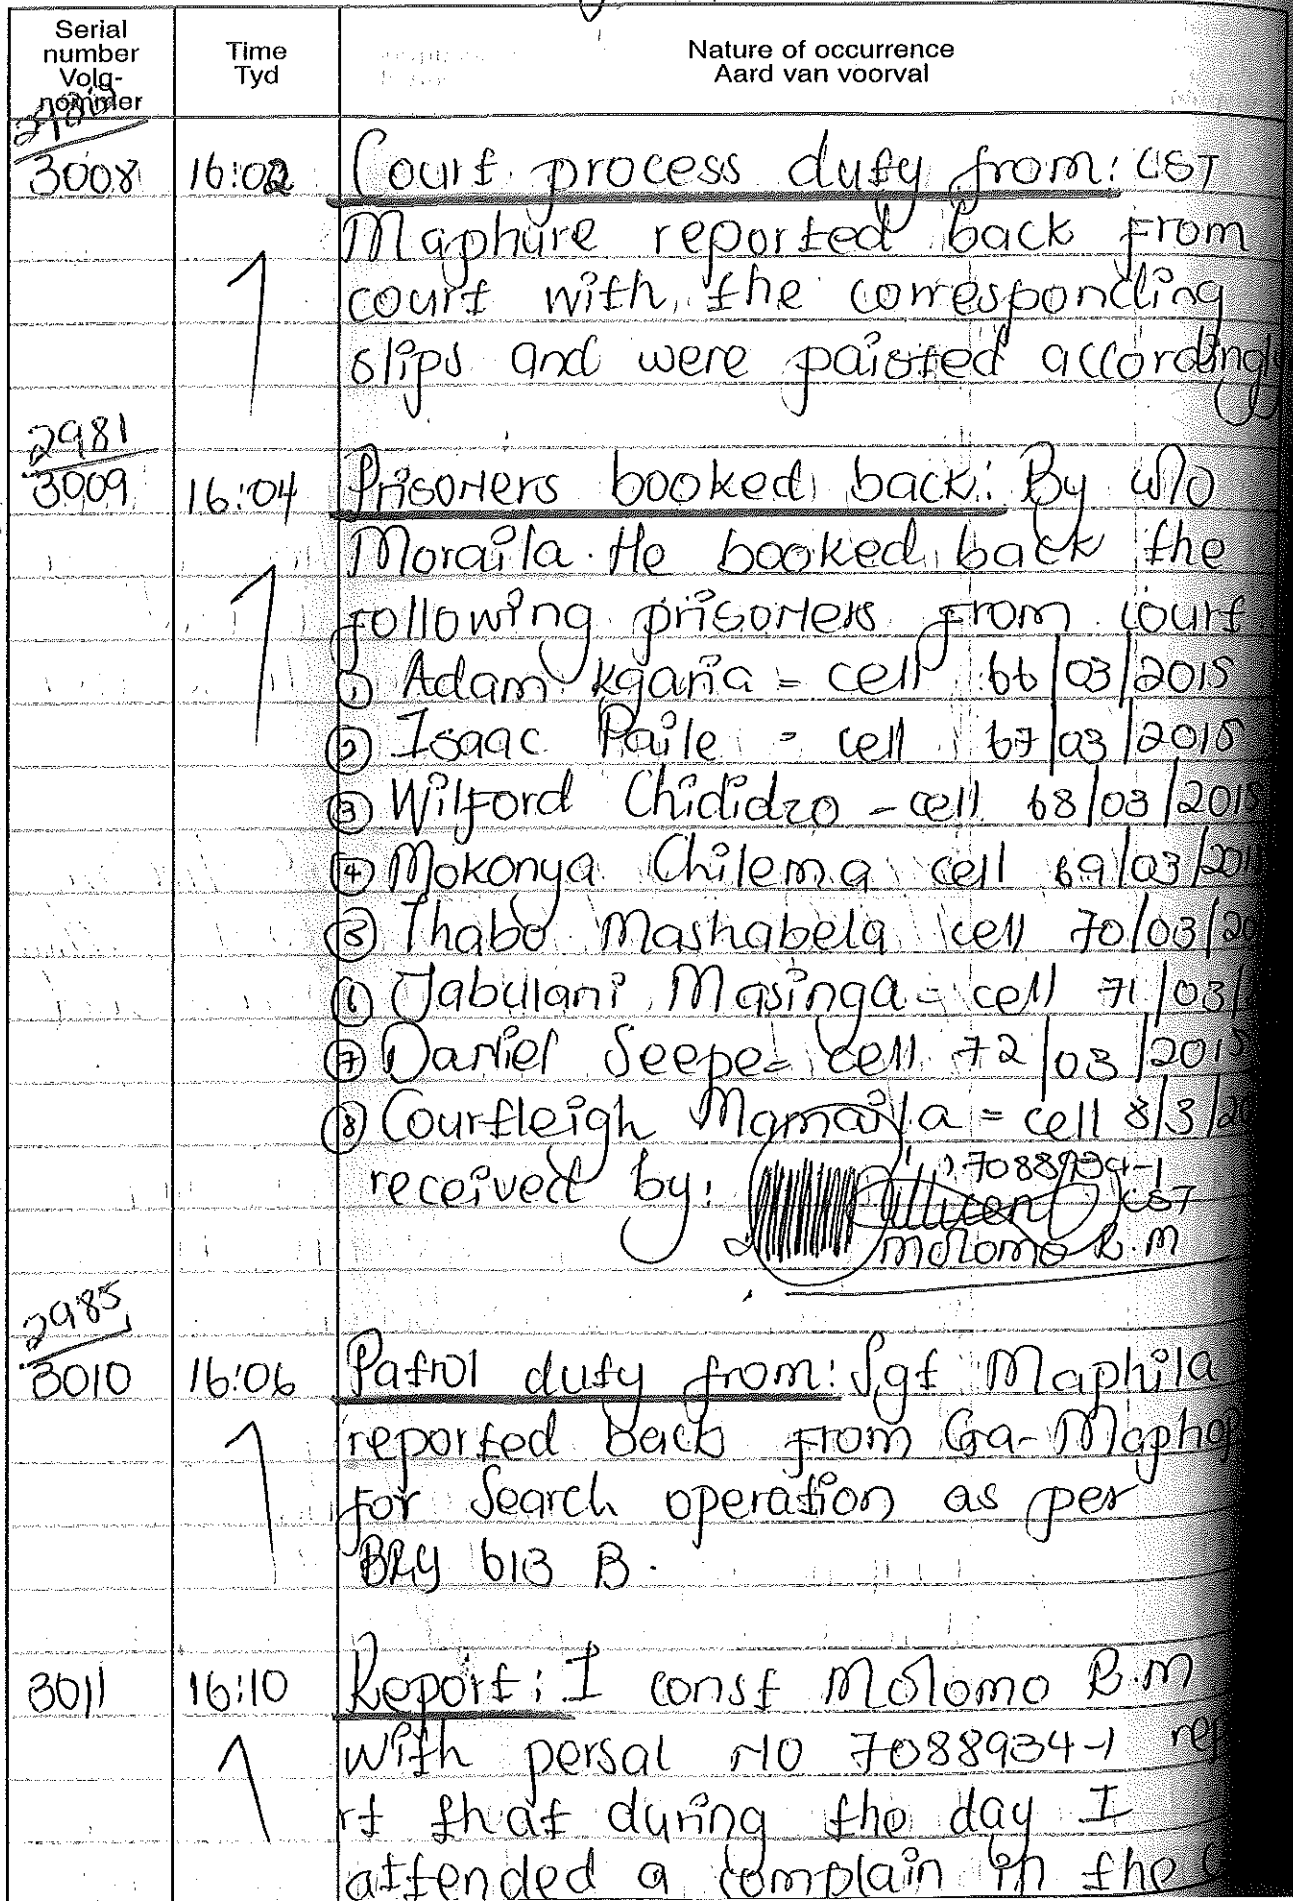 Serial number Volg-nommer
Time Tyd
Nature of occurrence
Aard van voorval
3008 16:02 Court process duty from: CST
Maphure reported back from
court with the corresponding
slips and were paisted accordingly
2981
3009 16:04 Prisoners booked back: By W/O
Moraila. He booked back the
following prisoners from court
① Adam Kgaria = cell 66/03/2015
② Isaac Paile = cell 67/03/2015
③ Wilford Chididzo - cell 68/03/2015
④ Mokonya Chilema cell 69/03/201
⑤ Thabo Mashabela cell 70/03/20
⑥ Jabulani Masinga = cell 71/03/
⑦ Daniel Seepe = cell 72/03/2015
⑧ Courtleigh Mamaila = cell 8/3/20
received by: 7088934-1
CST
Molomo R.M
2985
3010 16:06 Patrol duty from: Sgt Maphila
reported back from Ga-Mapho
for Search operation as per
BRY 613 B.
3011 16:10 Report: I const Molomo R.M
with persal no 7088934-1 rep
rt that during the day I
attended a complain in the